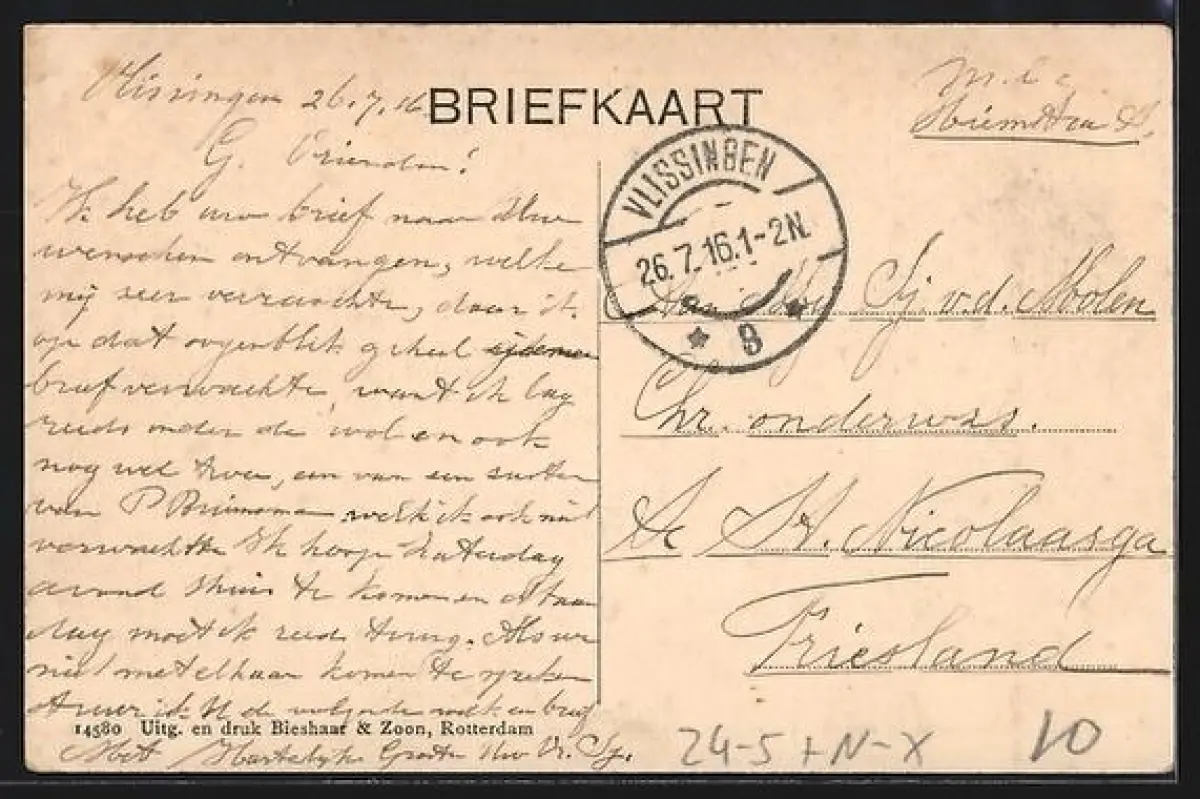 Vlissingen 26.7.16
BRIEFKAART
G. Vrienden!
Ik heb uw brief naar Uw
wenschen ontvangen, welke
mij zeer verraschte, daar ik
op dat oogenblik geheel
brief verwachtte, want ik lag
reeds onder de wol en ook
nog wel twee, een van een
van P. welk ik ook niet
verwachtte Ik hoop Zaterdag
avond thuis te komen en
dag moet ik reeds terug. Als we
niet met elkaar komen te spreken
stuur ik U de volgende week en brief
14580 Uitg. en druk Bieshaar & Zoon, Rotterdam
Met Hartelijke Groeten Uw Vr. Sj.
VLISSINGEN
26.7.16.1-2N.
8
Sj. v.d. Molen
Chr. onderwzs.
Te St. Nicolaasga
Friesland
24-5+N-X
10